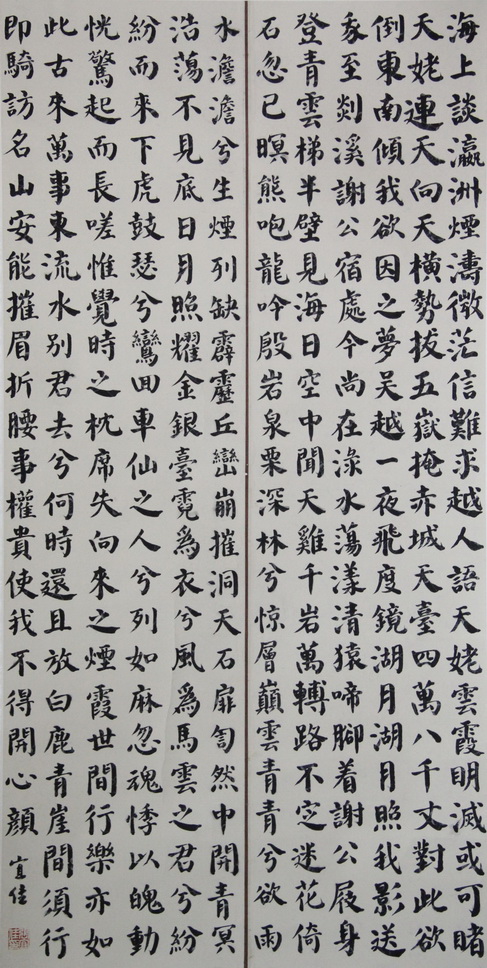 海上談瀛洲煙濤微茫信難求越人語天姥雲霞明滅或可睹
天姥連天向天橫勢拔五嶽掩赤城天臺四萬八千丈對此欲
倒東南傾我欲因之夢吳越一夜飛度鏡湖月湖月照我影送
我至剡溪謝公宿處今尚在淥水蕩漾清猿啼腳着謝公屐身
登青雲梯半壁見海日空中聞天雞千岩萬轉路不定迷花倚
石忽已暝熊咆龍吟殷岩泉栗深林兮惊層巔雲青青兮欲雨
水澹澹兮生煙列缺霹靂丘巒崩摧洞天石扉訇然中開青冥
浩蕩不見底日月照耀金銀臺霓為衣兮風為馬雲之君兮紛
紛而來下虎鼓瑟兮鸞回車仙之人兮列如麻忽魂悸以魄動
恍驚起而長嗟惟覺時之枕席失向來之煙霞世間行樂亦如
此古來萬事東流水別君去兮何時還且放白鹿青崖間須行
即騎訪名山安能摧眉折腰事權貴使我不得開心顏 宜佳